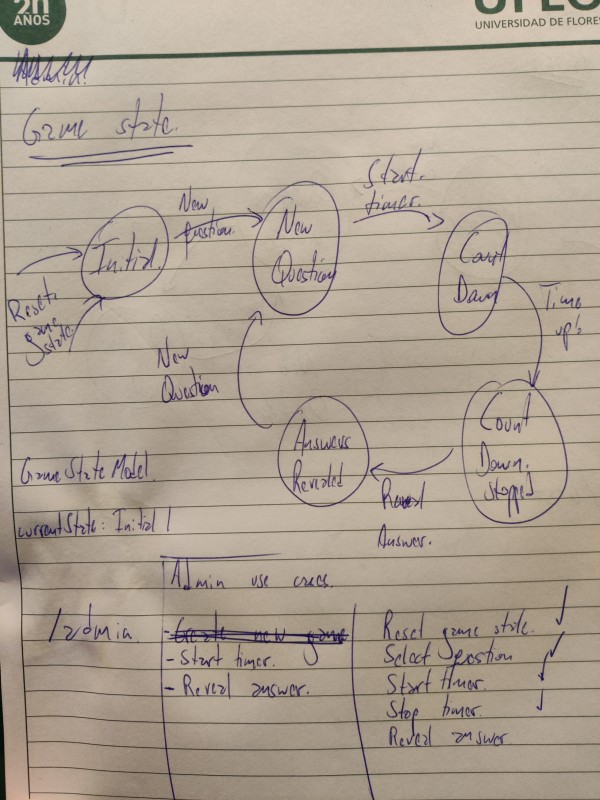 20
AÑOS
UNIVERSIDAD DE FLORES
Game state.
Start.
timer.
New
Question.
New
Question
Initial.
Count
Down
Reset.
game
state.
Time
up!
New
Question
Answers
Revealed
Count
Down.
Stopped
GameStateModel.
Reveal
Answer.
currentState: Initial |
Admin use cases.
/admin.
- Create new game
- Start timer.
- Reveal answer.
Reset game state.
Select question
Start timer.
Stop timer.
Reveal answer